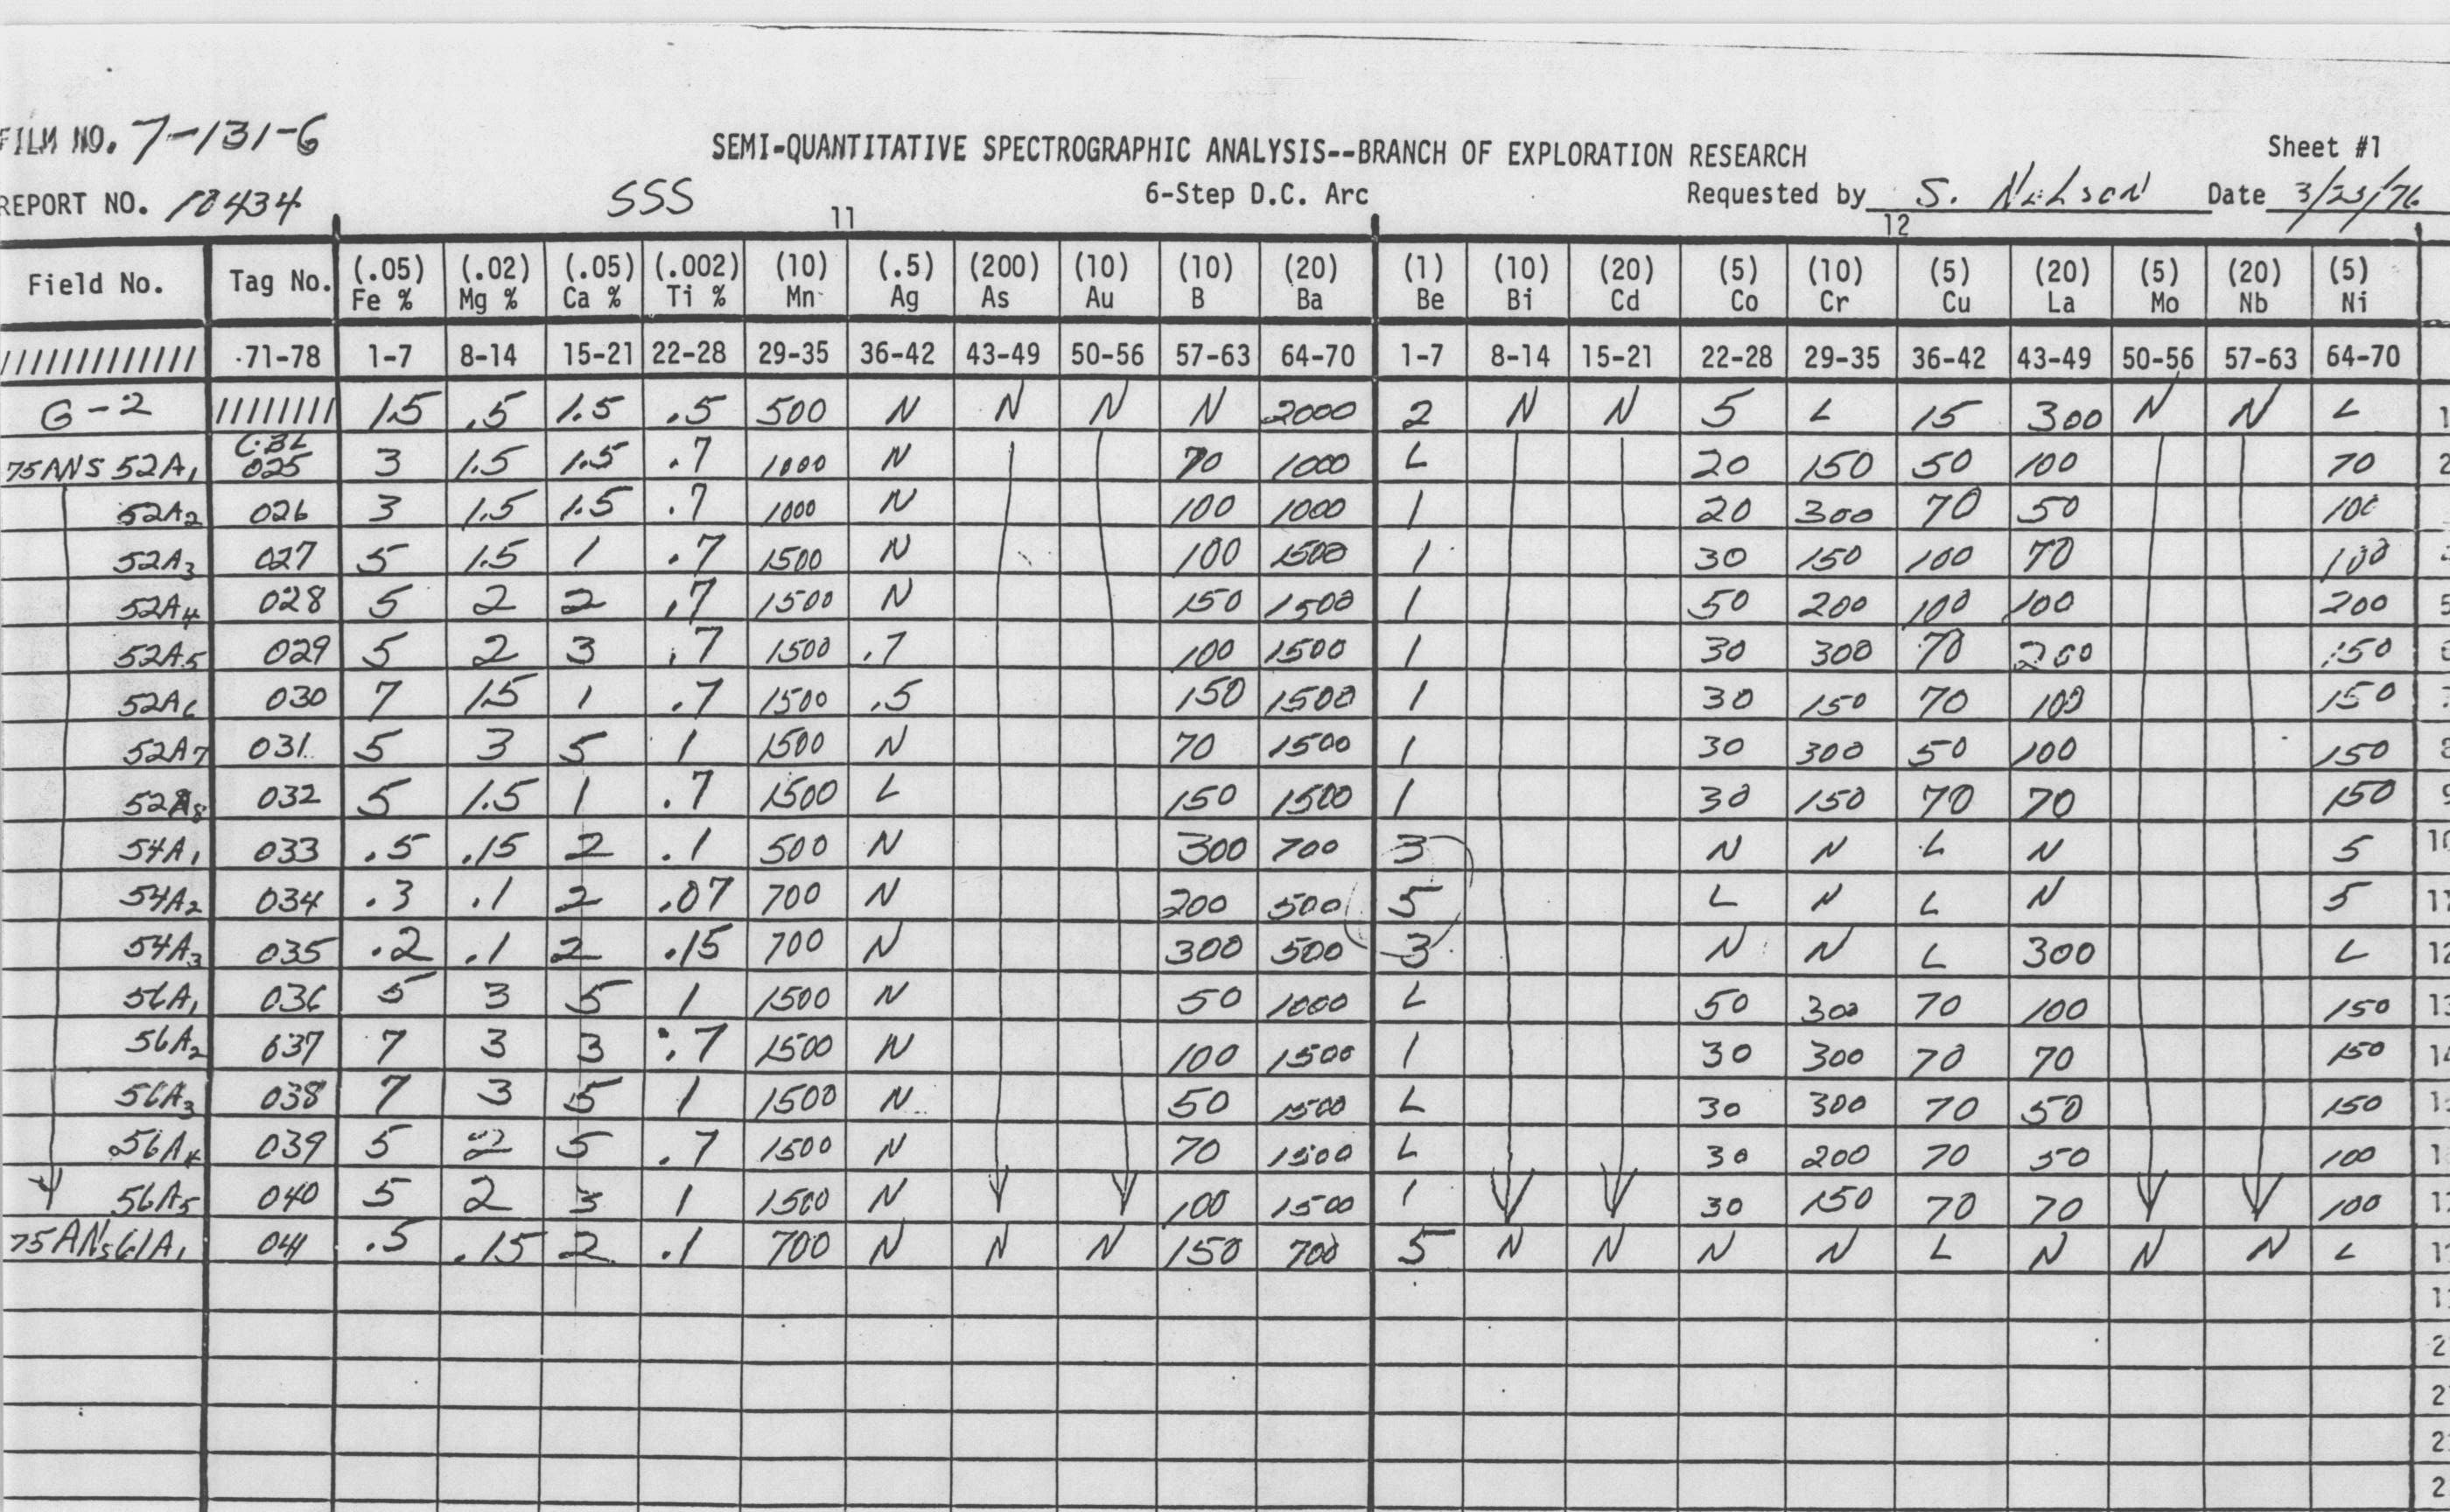 FILM NO. 7-131-6
SEMI-QUANTITATIVE SPECTROGRAPHIC ANALYSIS--BRANCH OF EXPLORATION RESEARCH Sheet #1
REPORT NO. 10434 SSS 6-Step D.C. Arc Requested by S. Nelson Date 3/23/76
11 12
Field No. Tag No. (.05) Fe % (.02) Mg % (.05) Ca % (.002) Ti % (10) Mn (.5) Ag (200) As (10) Au (10) B (20) Ba (1) Be (10) Bi (20) Cd (5) Co (10) Cr (5) Cu (20) La (5) Mo (20) Nb (5) Ni
///////////// 71-78 1-7 8-14 15-21 22-28 29-35 36-42 43-49 50-56 57-63 64-70 1-7 8-14 15-21 22-28 29-35 36-42 43-49 50-56 57-63 64-70
G-2 //////// 1.5 .5 1.5 .5 500 N N N N 2000 2 N N 5 L 15 300 N N L 1
75ANS 52A1 025 3 1.5 1.5 .7 1000 N 70 1000 L 20 150 50 100 70 2
52A2 026 3 1.5 1.5 .7 1000 N 100 1000 1 20 300 70 50 100
52A3 027 5 1.5 1 .7 1500 N 100 1500 1 30 150 100 70 100
52A4 028 5 2 2 .7 1500 N 150 1500 1 50 200 100 100 200 5
52A5 029 5 2 3 .7 1500 .7 100 1500 1 30 300 70 200 150
52A6 030 7 1.5 1 .7 1500 .5 150 1500 1 30 150 70 100 150
52A7 031 5 3 5 1 1500 N 70 1500 1 30 300 50 100 150 8
52A8 032 5 1.5 1 .7 1500 L 150 1500 1 30 150 70 70 150 9
54A1 033 .5 .15 2 .1 500 N 300 700 3 N N L N 5 10
54A2 034 .3 .1 2 .07 700 N 200 500 5 L N L N 5 11
54A3 035 .2 .1 2 .15 700 N 300 500 3 N N L 300 L 12
56A1 036 5 3 5 1 1500 N 50 1000 L 50 300 70 100 150 13
56A2 037 7 3 3 .7 1500 N 100 1500 1 30 300 70 70 150 14
56A3 038 7 3 5 1 1500 N 50 1500 L 30 300 70 50 150
56A4 039 5 2 5 .7 1500 N 70 1500 L 30 200 70 50 100
56A5 040 5 2 3 1 1500 N 100 1500 1 30 150 70 70 100
75ANS61A1 041 .5 .15 2 .1 700 N N N 150 700 5 N N N N L N N N L